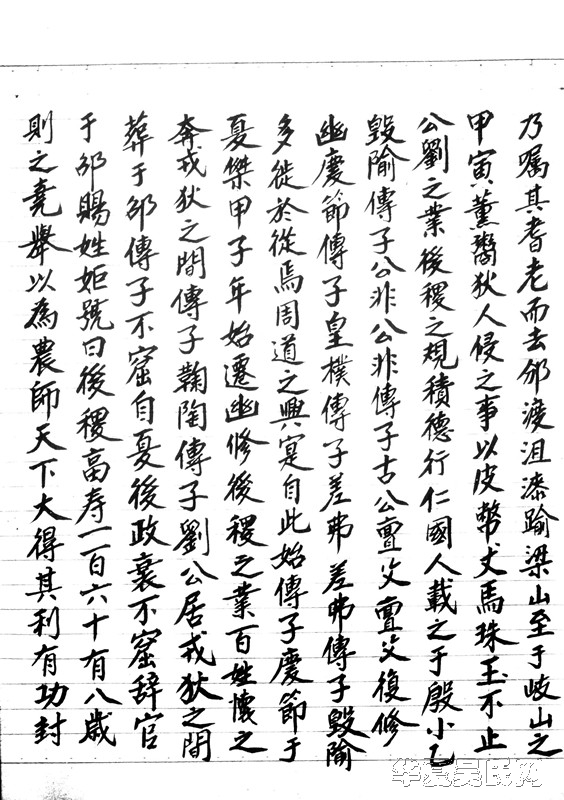 則之堯舉以為農師天下大得其利有功封
于邵賜姓姬號曰後稷高寿一百六十有八歲
葬于邵傳子不窟自憂後政衰不窟辞官
奔戎狄之間傳子鞠陶傳子劉公居戎狄之間
憂傑甲子年始遷幽修後稷之業百姓懷之
多徙於從焉周道之興寔自此始傳子慶節于
幽慶節傳子皇樸傳子差弗差弗傳子毀隃
毀隃傳子公非公非傳子古公亶父亶父復修
公劉之業後稷之規積德行仁國人載之于殷小乙
甲寅薰鬻狄人侵之事以皮幣犬馬珠玉不止
乃嘱其耆老而去邠渡沮漆踰梁山至于岐山之
华夏吴氏网